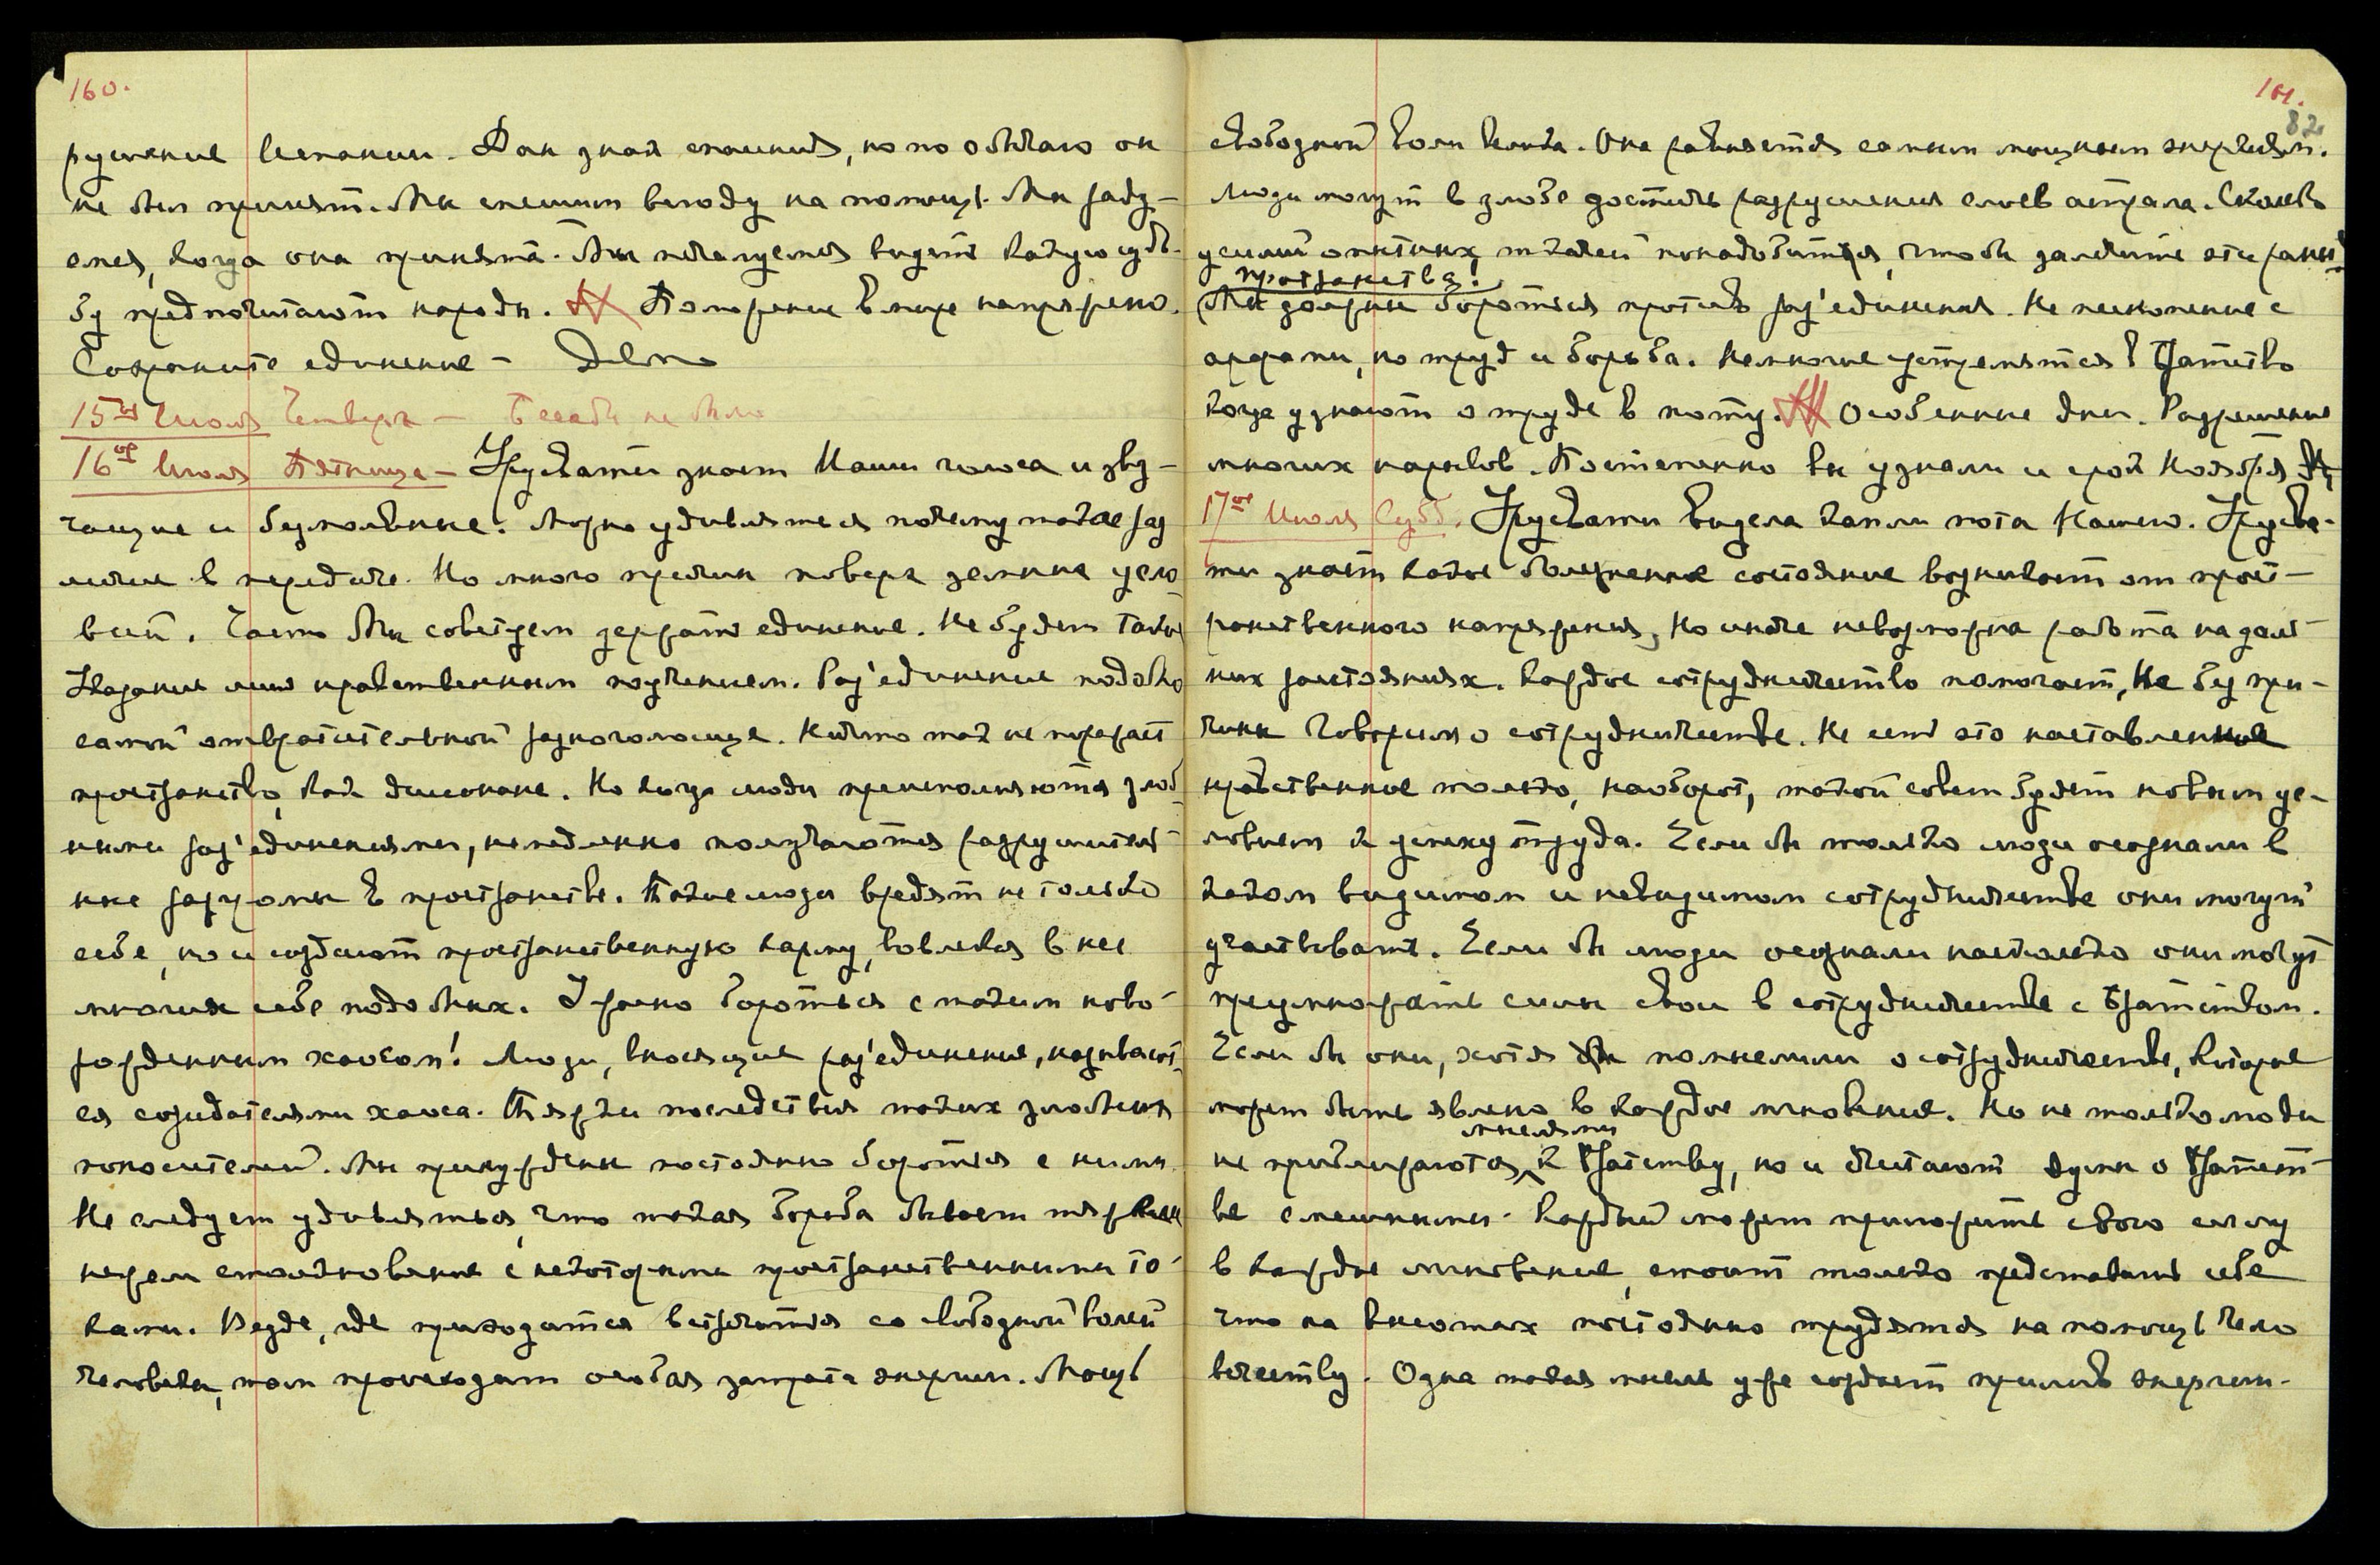 160.
рушение Испании. Дан знак спешить, но по обычаю он
не был принят. Мы спешим всюду на помощь. Мы раду-
емся, когда она принята. Мы печалуемся видеть какую судь-
бу предпочитают народы. Положение в мире напряжено.
Сохраните единение – Довольно
15ое Июля Четверг – Беседы не было
16ое Июля Пятница – Урусвати знает Наши голоса и зву-
чащие и безмолвные. Можно удивляться почему такое раз
личие в передаче. Но много причин поверх земных усло
вий. Часто Мы советуем держать единение. Не будет такое
Указание лишь нравственным поучением. Раз'единение подобно
самой отвратительной разноголосице. Ничто так не поражает
пространство, как диссонанс. Но когда люди преисполняются злоб
ными раз'единениями, немедленно получаются разрушитель-
ные разрывы в пространстве. Такие люди вредят не только
себе, но и создают пространственную карму, вовлекая в нее
многих себе подобных. Ужасно бороться с таким ново-
рожденным хаосом! Люди, вносящие раз'единение, называют-
ся созидателями хаоса. Тяжки последствия таких злобных
поносителей. Мы принуждены постоянно бороться с ними.
Не следует удивляться, что такая борьба бывает тяжкее
нежели столкновение с некоторыми пространственными то-
ками. Везде, где приходится встречаться со свободной волей
человека, там происходит особая затрата энергии. Мощь
161.
82
свободной воли велика. Она равняется самым мощным энергиям.
Люди могут в злобе достичь разрушения слоев астрала. Сколько
усилий опытных ткачей понадобится, чтобы залечить эти раны
пространства!
Мы должны бороться против раз'единения. Не песнопение с
арфами, но труд и борьба. Немногие устремятся в Братство
когда узнают о труде в поту. Особенные дни. Разрешение
многих нарывов. Постепенно вы узнали и срок Ноября
17ое Июля Субб. Урусвати видела капли пота Нашего. Урусва-
ти знает какое болезненное состояние возникает от прост-
ранственного напряжения, Но иначе невозможна работа на даль-
них расстояниях. Каждое сотрудничество помогает, Не без при-
чины Говорим о сотрудничестве. Не есть это наставление
нравственное только, наоборот, такой совет будет новым ус-
ловием к успеху труда. Если бы только люди осознали в
каком видимом и невидимом сотрудничестве они могут
участвовать. Если бы люди осознали насколько они могут
преумножать силы свои в сотрудничестве с Братством.
Если бы они, хотя бы помыслили о сотрудничестве, которое
может быть явлено в каждое мгновение. Но не только люди
мыслями
не приближаются к Братству, но и считают думы о Братст-
ве смешными. Каждый может приложить свою силу
в каждое мгновение, стоит только представить себе
что на высотах постоянно трудятся на помощь чело
вечеству. Одна такая мысль уже создает прилив энергии.